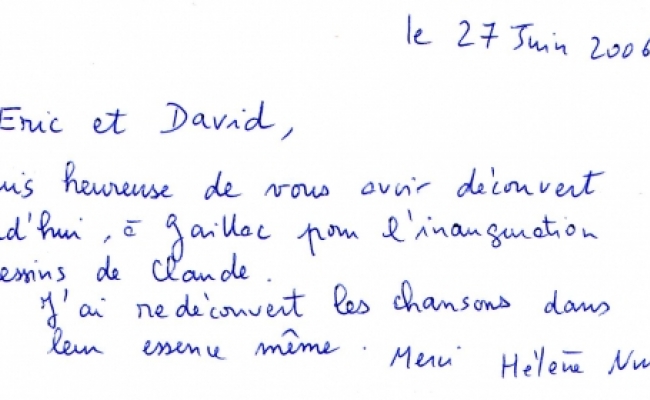 le 27 Juin 2006
Eric et David,
uis heureuse de vous avoir découvert
d'hui, à Gaillac pour l'inauguration
essins de Claude.
J'ai redécouvert les chansons dans
leur essence même. Merci Hélène